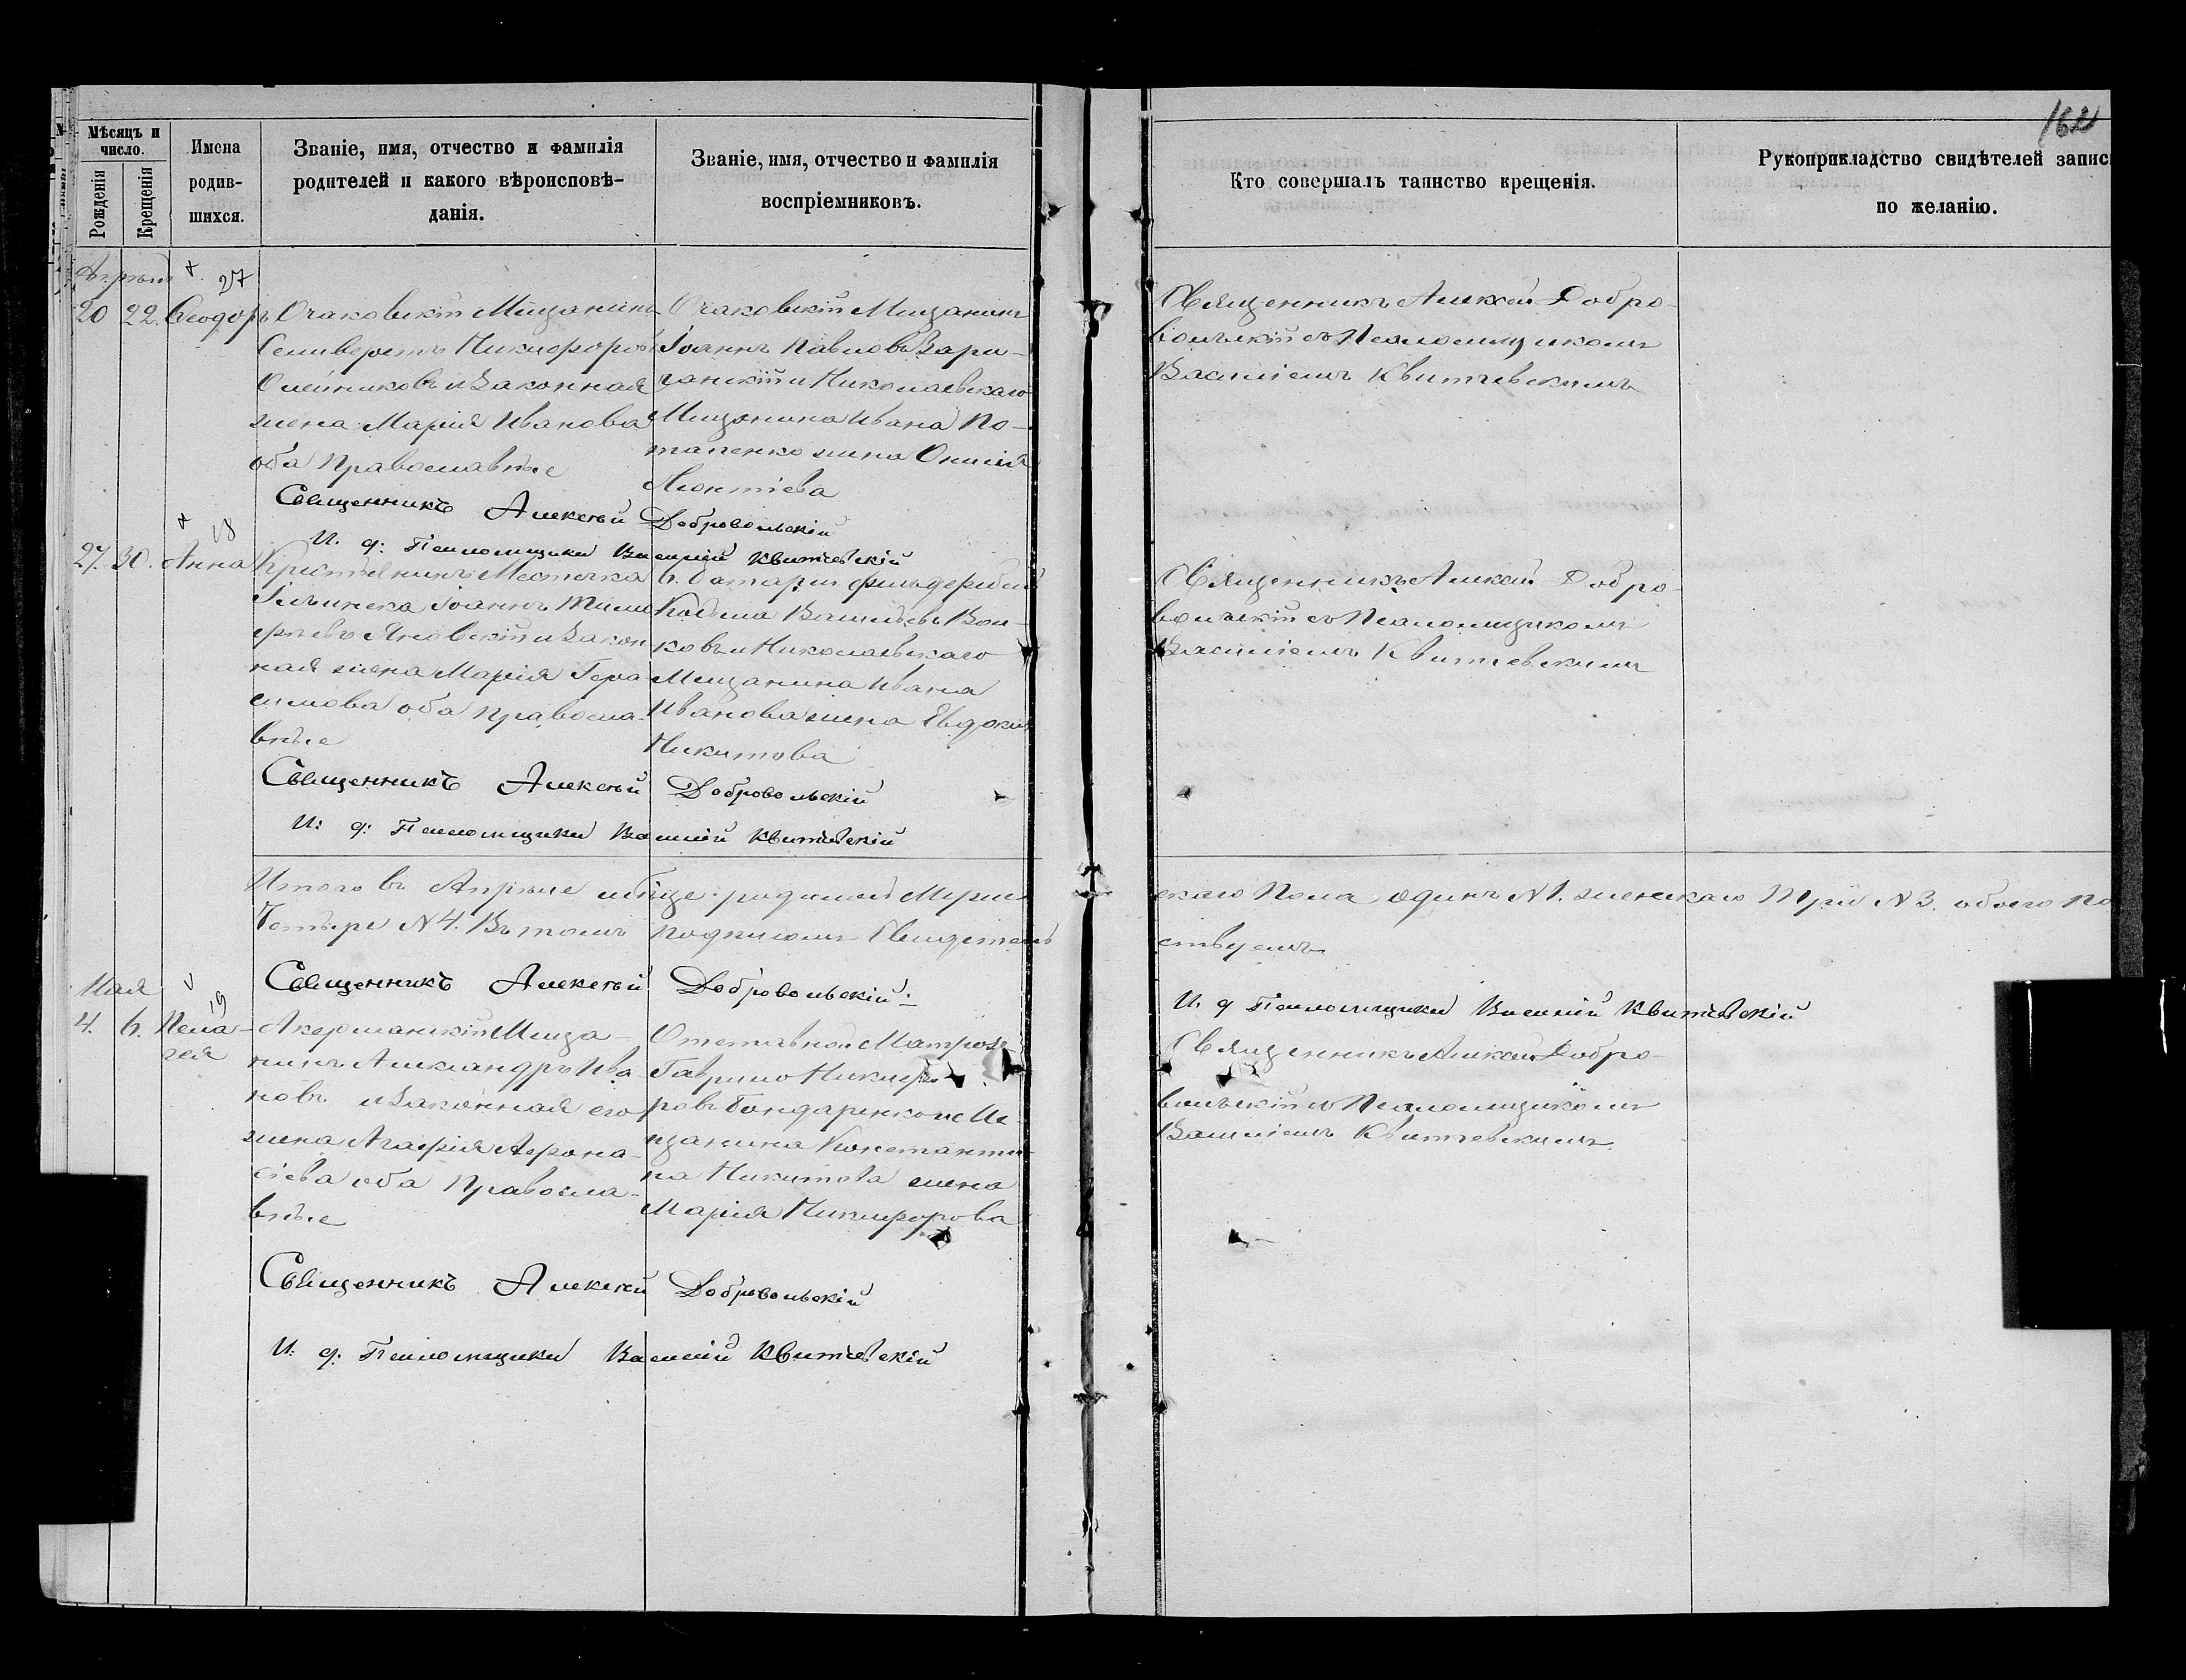 162
Мѣсяцъ и
число.
Рожденія
Крещенія
Имена
родив-
шихся.
Званіе, имя, отчество и фамилія
родителей и какого вѣроисповѣ-
данія.
Званіе, имя, отчество и фамилія
воспріемниковъ.
Кто совершалъ таинство крещенія.
Рукоприкладство свидѣтелей запис
по желанію.
Апрѣль
27
20 22. Ѳеодоръ
Очаковскій Мѣщанинъ
Селиверстъ Никифоровъ
Олейниковъ и законная
жена Марія Иванова
оба Православные
Очаковскій Мещанинъ
Іоаннъ Павловъ Зари-
чанскій и Николаевскаго
Мещанина Ивана По-
тапенко жена
Леонтіева
Священникъ Алексѣй Добро-
вольскій съ Псаломщикомъ
Василіемъ Квитчевскимъ
Священникъ Алексѣй Добровольскій
И. д. Псаломщика Василій Квитчевскій
18
27. 30. Анна
Крестьянинъ Местечка
Іоаннъ Тимо
Яновскій и Закон
ная жена Марія Гера
симова оба Правосла-
вные
Козьма Васильевъ Вол-
ковъ и Николаевскаго
Мещанина Ивана
Иванова жена Евдокія
Никитова
Священникъ Алексѣй Добро-
вольскій съ Псаломщикомъ
Василіемъ Квитчевскимъ
Священникъ Алексѣй Добровольскій
И: д: Псаломщика Василій Квитчевскій
Итого въ Апрѣле мѣсяце: родилось Мужескаго Пола одинъ N 1. женскаго Три N 3. обоего По
Четыре N 4. Въ томъ подписомъ Свидетельствуемъ
Священникъ Алексѣй Добровольскій:
И. д Псаломщика Василій Квитчевскій
Мая
19
4. 6. Пела-
гея
Акерманскій Меща-
нинъ Александръ Ива
новъ и Законная его
жена Агафія Афона-
сіева оба Правосла-
вные
Отставной Матрозъ
Гаврило Никифо-
ровъ Бондаренко и Ме
щанина Константи-
на Никитова жена
Марія Никифорова
Священникъ Алексѣй Добро-
вольскій съ Псаломщикомъ
Василіемъ Квитчевскимъ.
Священникъ Алексѣй Добровольскій
И: д: Псаломщика Василій Квитчевскій